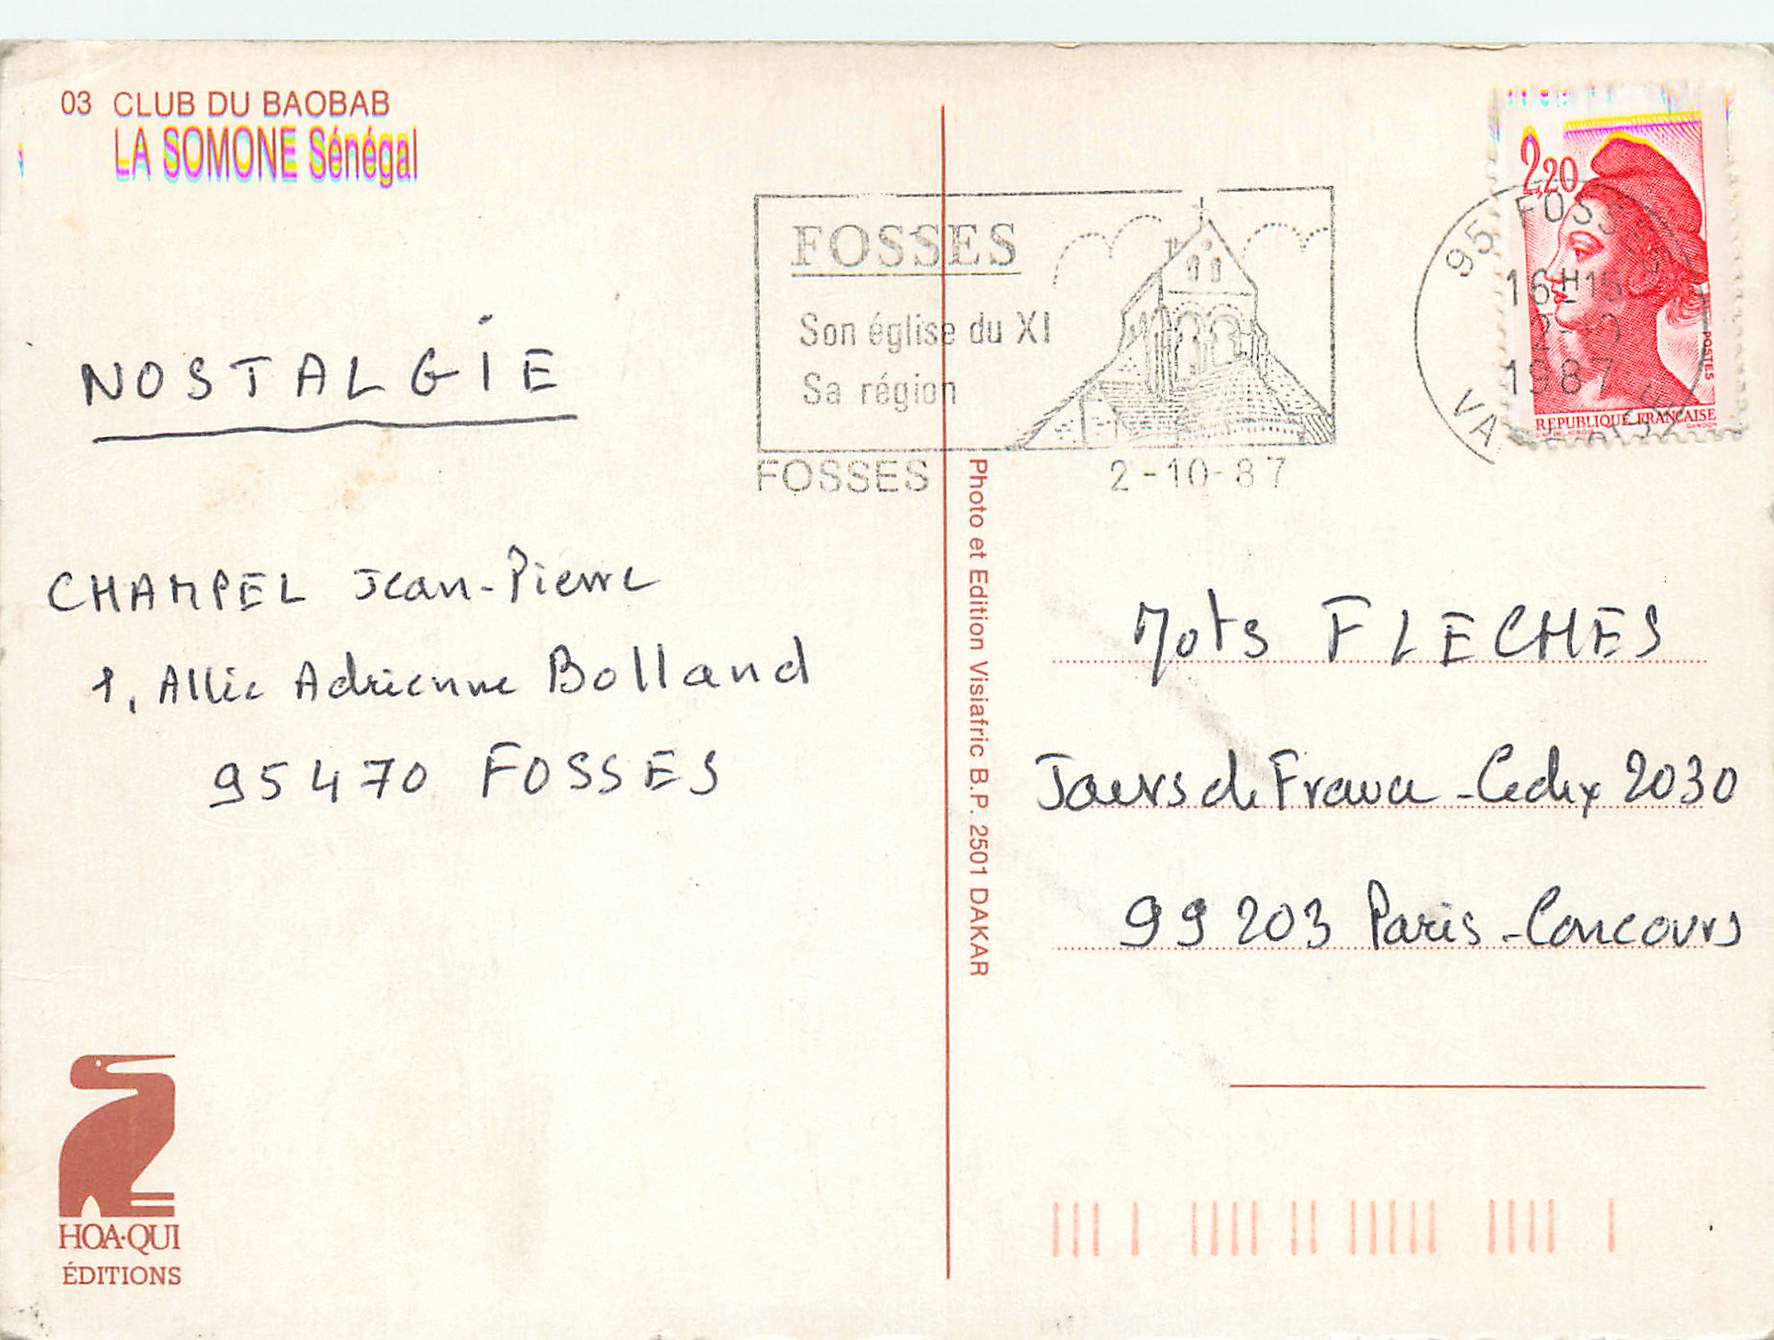 03 CLUB DU BAOBAB
LA SOMONE Sénégal
NOSTALGIE
CHAMPEL Jean-Pierre
1, Allée Adrienne Bolland
95470 FOSSES
HOA·QUI
ÉDITIONS
FOSSES
Son église du XI
Sa région
FOSSES 2-10-87
Photo et Edition Visiafric B.P. 2501 DAKAR
2,20
POSTES
REPUBLIQUE FRANÇAISE
95 FOSSES
16H15
2-10
1987
Mots FLECHES
Jours de France - Cedex 2030
99203 Paris - Concours